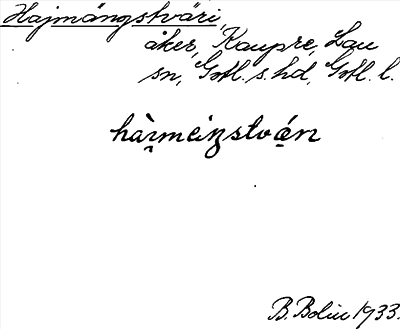 Hajmångstväri,
åker, Kaupre, Lau
sn, Gotl. s. hd, Gotl. l.
B. Bolin 1933.